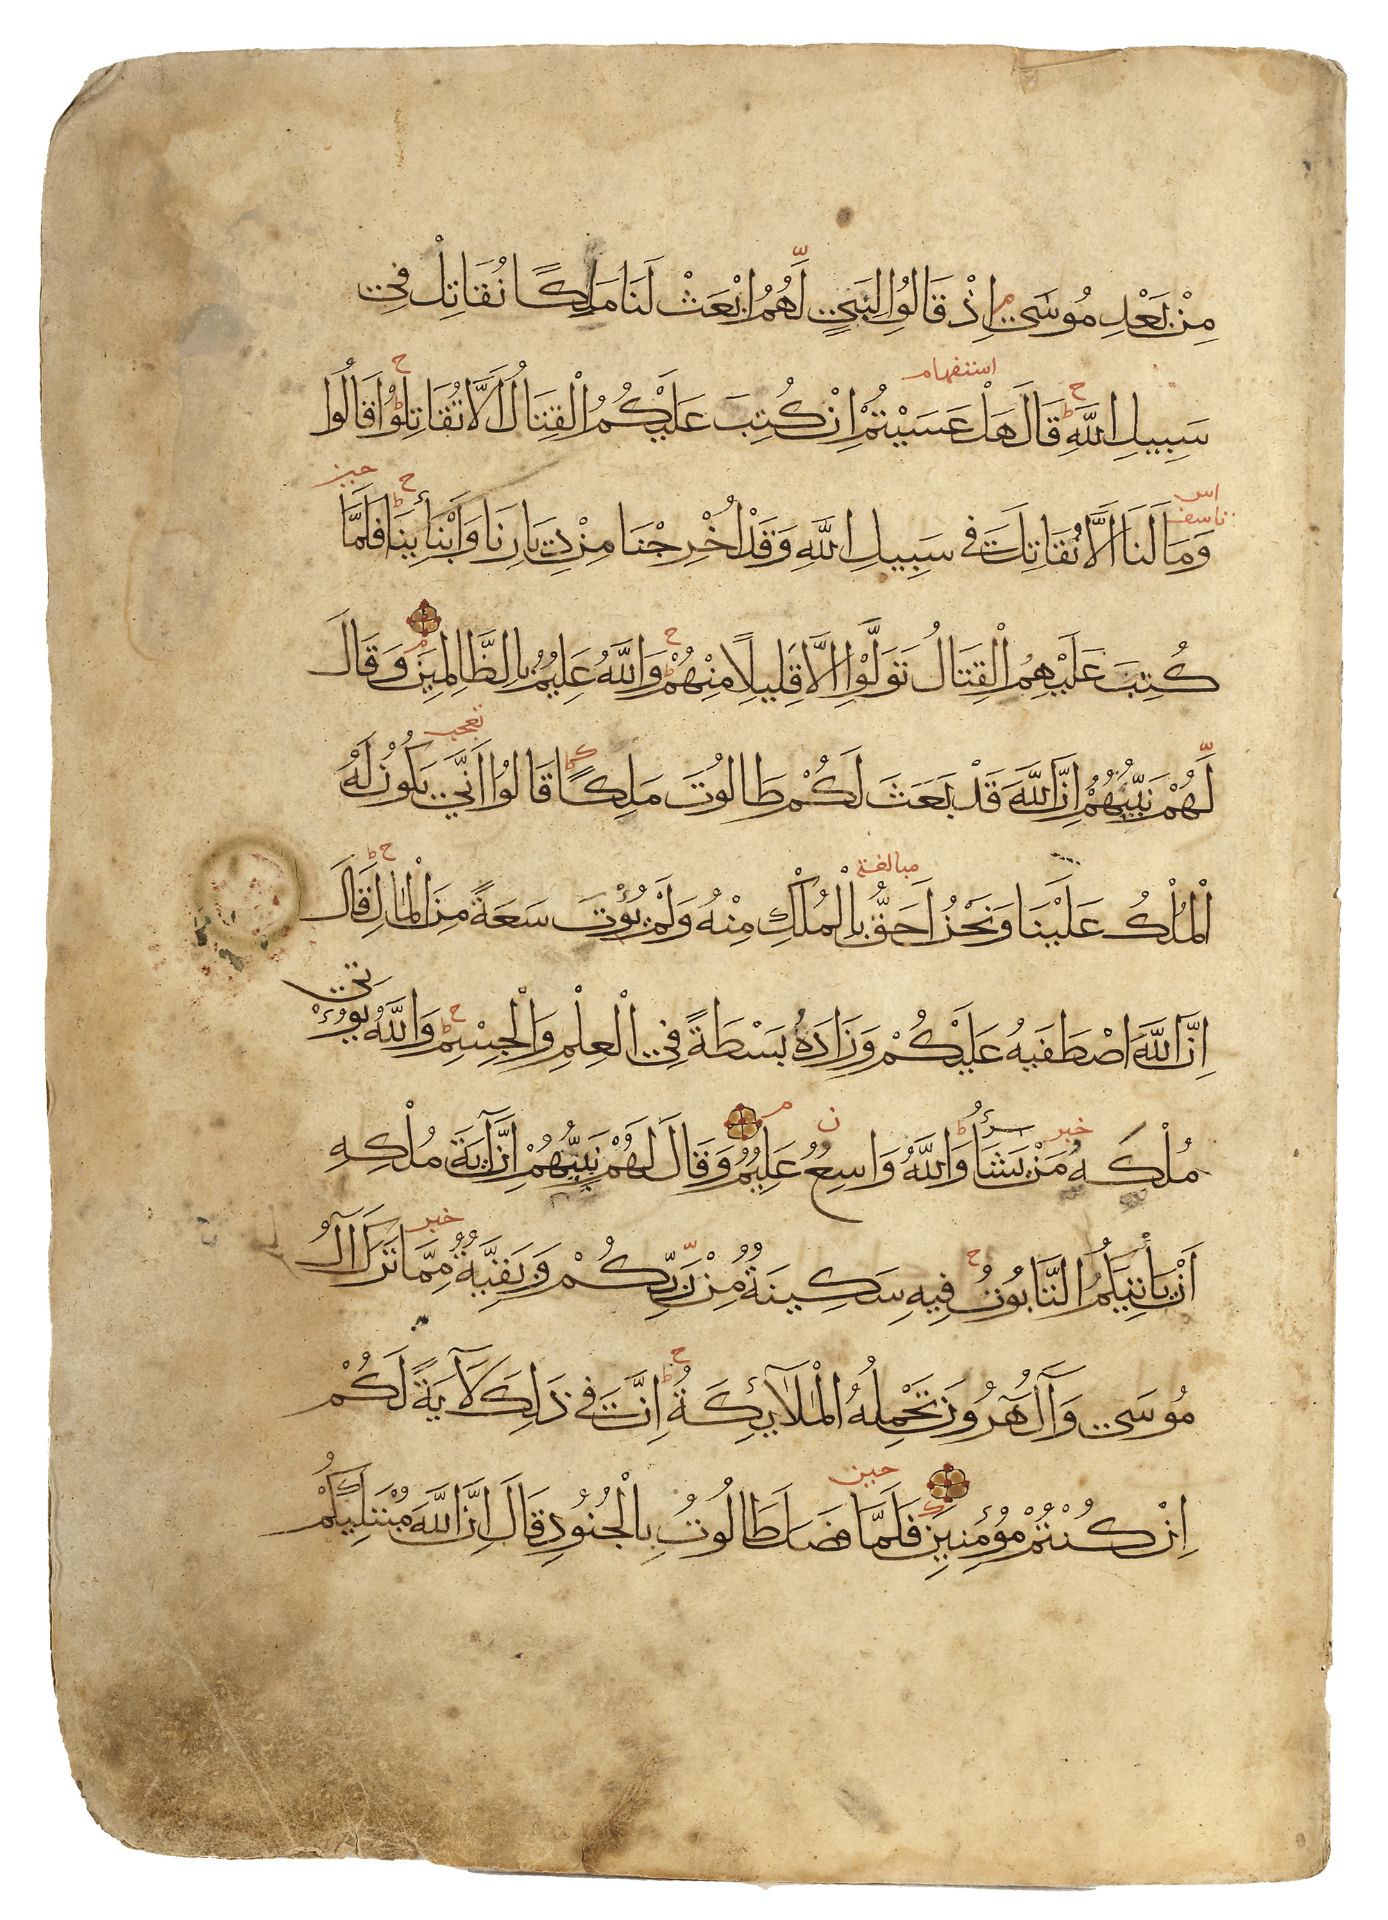 مِنْ بَعْدِ مُوسَى م اِذْ قَالُوا لِنَبِيٍّ لَّهُمُ ابْعَثْ لَنَا مَلِكًا نُقَاتِلْ فِي
استفهام
سَبِيلِ اللَّهِ ط ح قَالَ هَلْ عَسَيْتُمْ اِنْ كُتِبَ عَلَيْكُمُ الْقِتَالُ اَلَّا تُقَاتِلُوا ط ح قَالُوا
وَمَا لَنَا اَلَّا نُقَاتِلَ فِي سَبِيلِ اللَّهِ وَقَدْ اُخْرِجْنَا مِنْ دِيَارِنَا وَاَبْنَائِنَا ط ح فَلَمَّا
حين
كُتِبَ عَلَيْهِمُ الْقِتَالُ تَوَلَّوْا اِلَّا قَلِيلًا مِنْهُمْ ط ح وَاللَّهُ عَلِيمٌ بِالظَّالِمِينَ م وَقَالَ
تعجب
لَهُمْ نَبِيُّهُمْ اِنَّ اللَّهَ قَدْ بَعَثَ لَكُمْ طَالُوتَ مَلِكًا قَالُوا اَنَّى يَكُونُ لَهُ
مبالغة
الْمُلْكُ عَلَيْنَا وَنَحْنُ اَحَقُّ بِالْمُلْكِ مِنْهُ وَلَمْ يُؤْتَ سَعَةً مِنَ الْمَالِ ط ح قَالَ
اِنَّ اللَّهَ اصْطَفَيهُ عَلَيْكُمْ وَزَادَهُ بَسْطَةً فِي الْعِلْمِ وَالْجِسْمِ ط ح وَاللَّهُ يُؤْتِي
خبر
مُلْكَهُ مَنْ يَشَاءُ ط وَاللَّهُ وَاسِعٌ ن عَلِيمٌ م وَقَالَ لَهُمْ نَبِيُّهُمْ اِنَّ آيَةَ مُلْكِهِ
خبر
اَنْ يَأْتِيَكُمُ التَّابُوتُ ح فِيهِ سَكِينَةٌ مِنْ رَبِّكُمْ وَبَقِيَّةٌ مِمَّا تَرَكَ آلُ
مُوسَى وَآلُ هَرُونَ تَحْمِلُهُ الْمَلَآئِكَةُ ط ح اِنَّ فِي ذَلِكَ لَآيَةً لَكُمْ
حين
اِنْ كُنْتُمْ مُؤْمِنِينَ فَلَمَّا فَصَلَ طَالُوتُ بِالْجُنُودِ قَالَ اِنَّ اللَّهَ مُبْتَلِيكُمْ